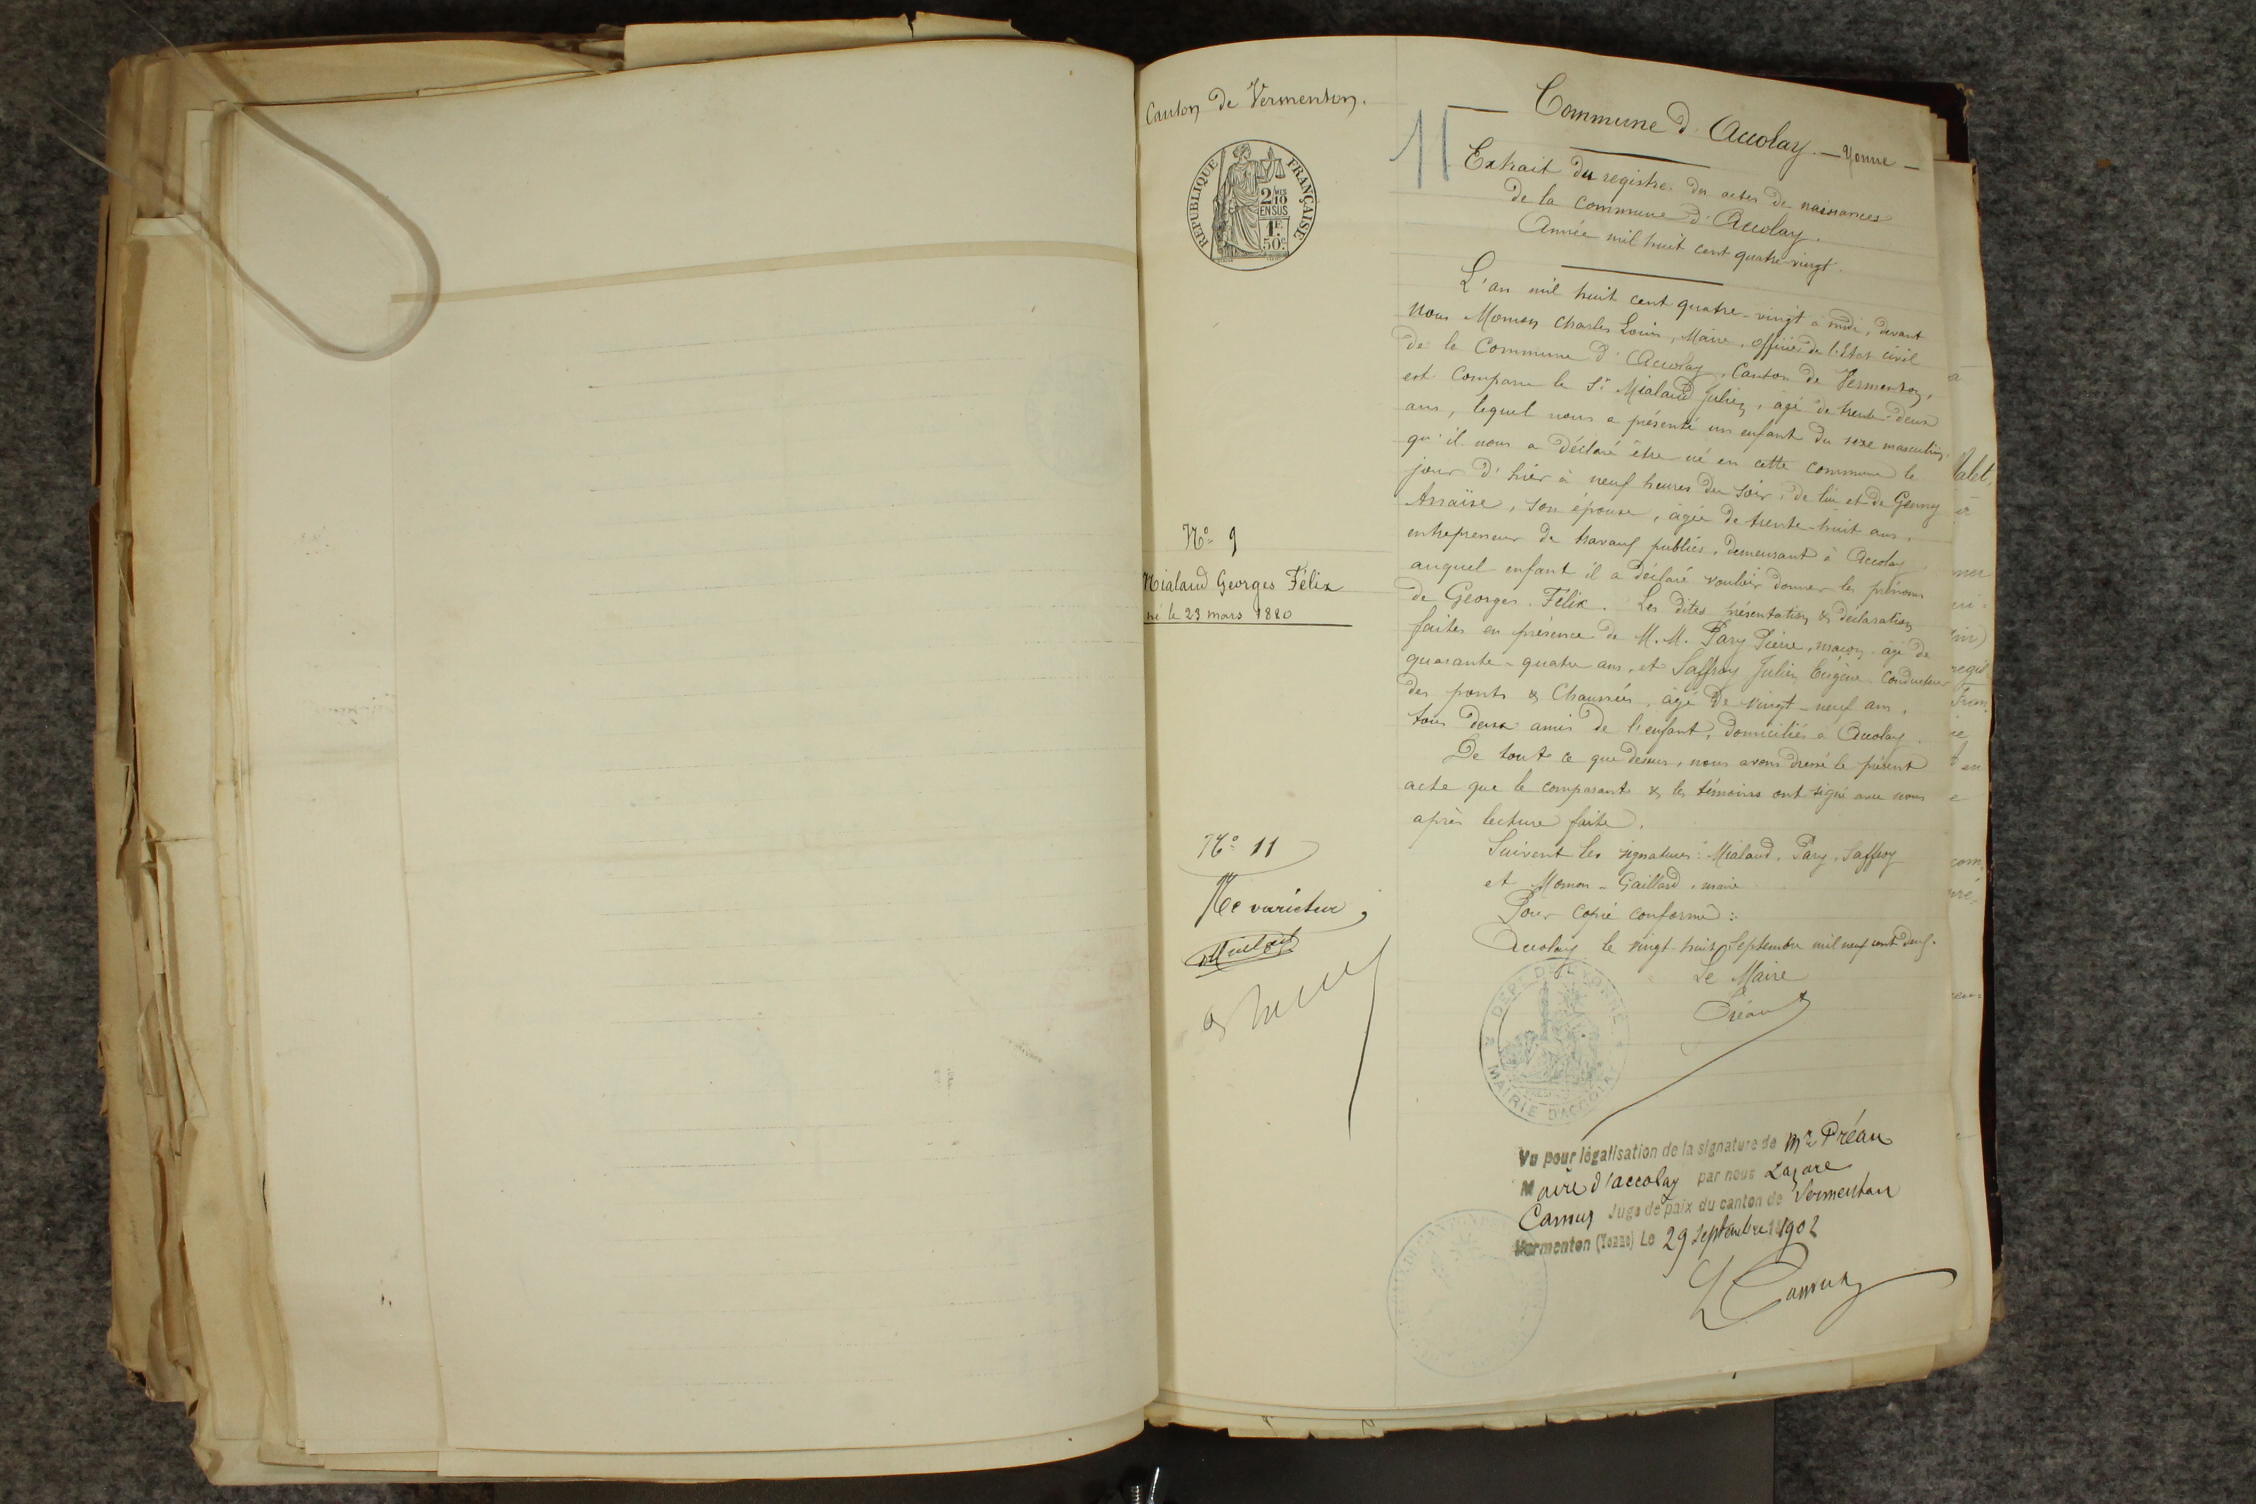 Canton de Vermenton.
RÉPUBLIQUE FRANÇAISE
2/10 MES
EN SUS
1F.
50c
Nº 9
Mialaud Georges Félix
né le 23 mars 1880
Nº 11
Ne varietur
11
Commune d'Accolay - Yonne -
Extrait du registre des actes de naissances
de la commune d'Accolay.
Année mil huit cent quatre-vingt.
L'an mil huit cent quatre-vingt à midi, devant
nous Momon Charles Louis, Maire, officier de l'Etat civil
de la Commune d'Accolay, Canton de Vermenton,
est comparu le Sr Mialaud Julien, agé de trente-deux
ans, lequel nous a présenté un enfant du sexe masculin,
qu'il nous a déclaré être né en cette commune le
jour d'hier à neuf heures du soir, de lui et de Genny
son épouse, agée de trente-huit ans,
entrepreneur de travaux publics, demeurant à Accolay
auquel enfant il a déclaré vouloir donner les prénoms
de Georges Félix. Les dites présentation & déclaration
faites en présence de M.M. Pary Pierre, maçon agé de
quarante-quatre ans, et Saffroy Julien Eugène conducteur
des ponts & Chaussées, âgé de vingt-neuf ans,
tous deux amis de l'enfant, domiciliés à Accolay.
De tout ce que dessus, nous avons dressé le présent
acte que le comparant & les témoins ont signé avec nous
après lecture faite.
Suivent les signatures: Mialaud, Pary, Saffroy
et Momon-Gaillard, maire
Pour copie conforme:
Accolay le vingt-huit Septembre mil neuf cent deux.
Le Maire
Préau
DEPT DE L'YONNE
MAIRIE D'ACCOLAY
Vu pour légalisation de la signature de Mr Préau
Maire d'accolay par nous Lazare
Camus Juge de paix du canton de Vermenton
Vermenton (Yonne) Le 29 septembre 1902
L Camus